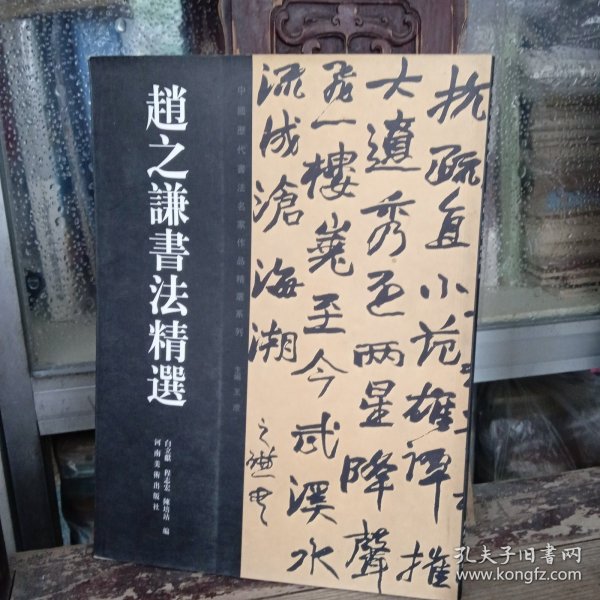 趙之謙書法精選
白立獻 程志宏 陳培站 編
河南美術出版社
中國歷代書法名家作品精選系列 主編 王澄
抗疏直小范雄譚摧
大遺秀色两星降聲
飛一樓嵬至今武溪水
流成滄海潮
之謙
孔夫子旧书网
www.kongfz.com